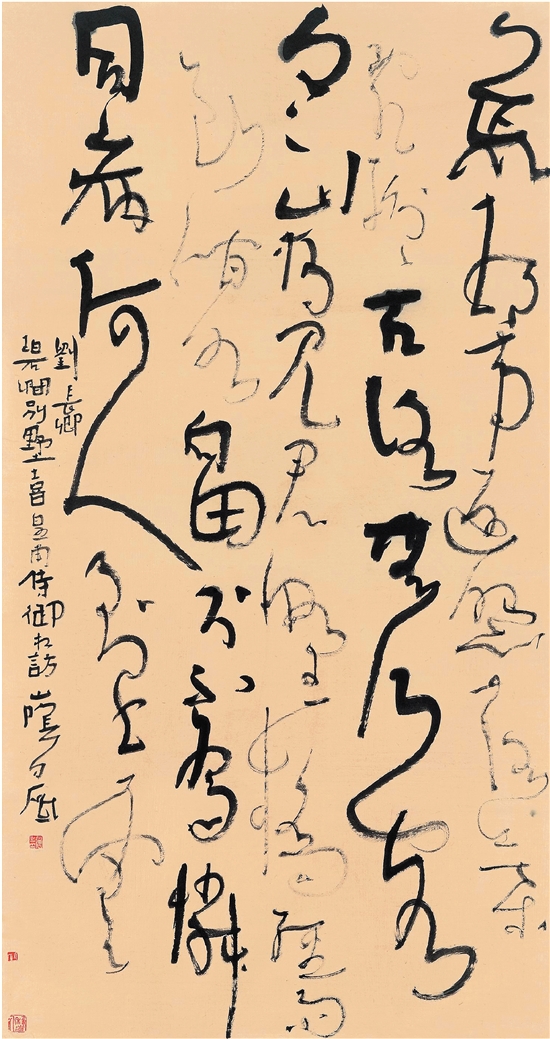 荒邨帶返照落葉
亂紛紛古路無行客
寒山獨見君野橋經雨
斷澗水向田分不為憐
同病何人到白雲
劉長卿
碧澗別墅喜皇甫侍御相訪 白砥